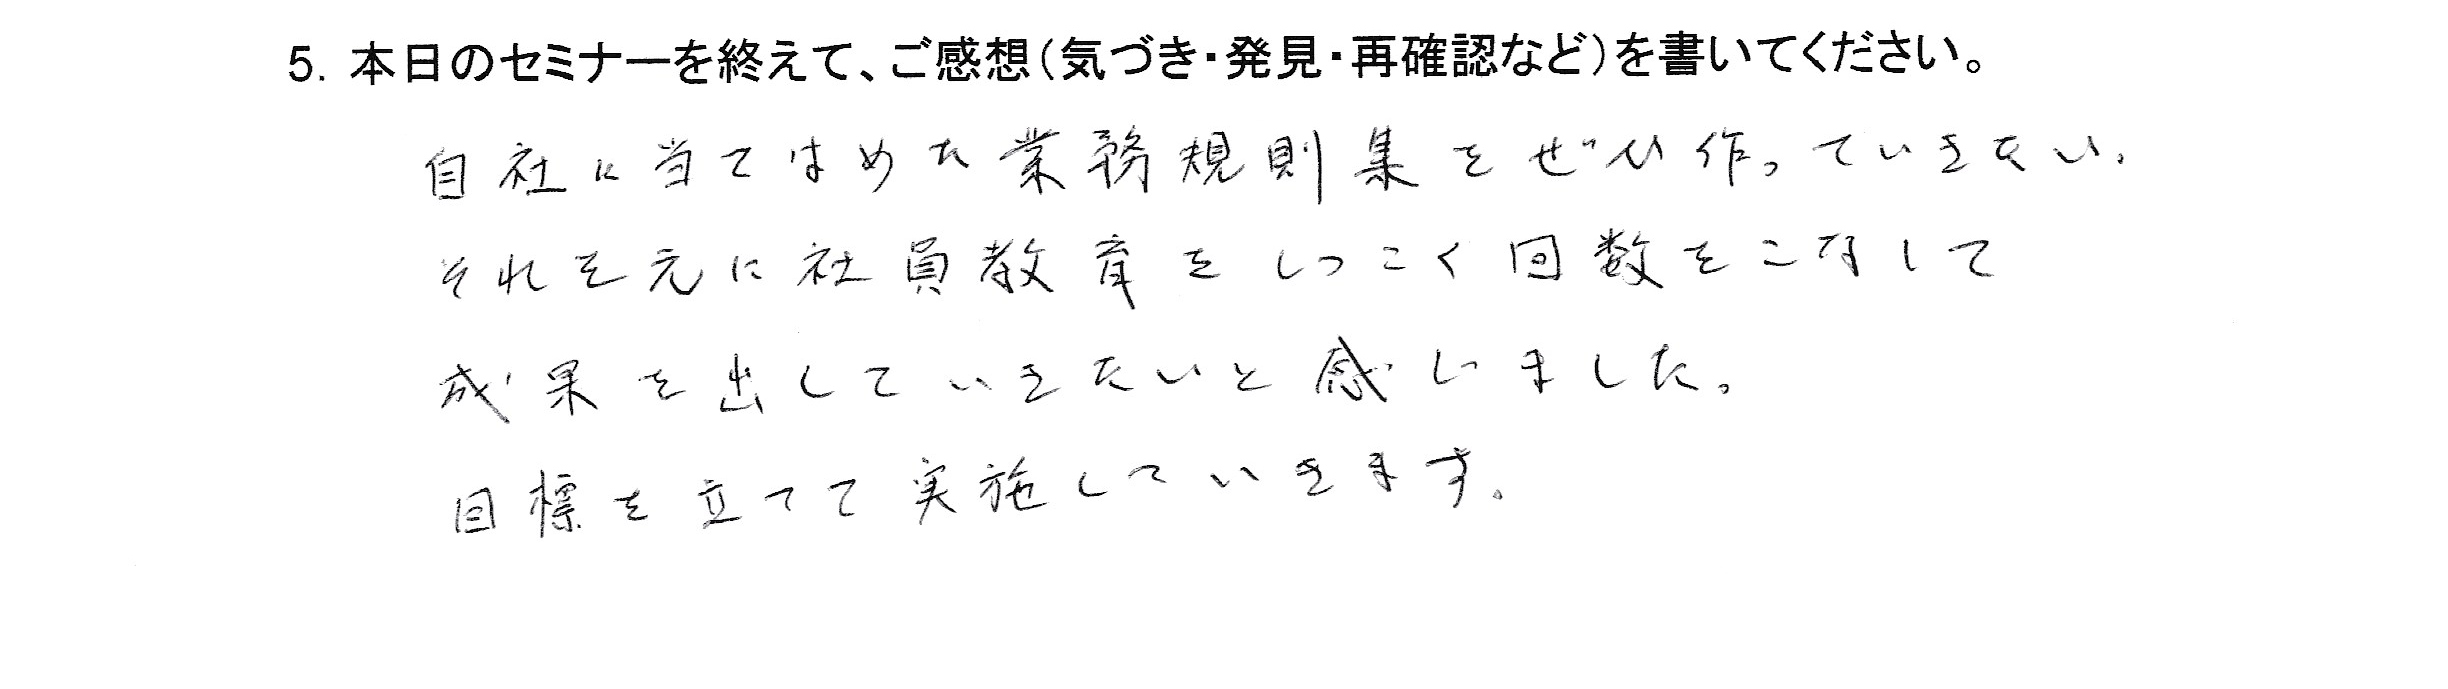 5. 本日のセミナーを終えて、ご感想(気づき・発見・再確認など)を書いてください。
自社に当てはめた業務規則集をぜひ作っていきたい。
それを元に社員教育をしつこく回数をこなして
成果を出していきたいと感じました。
目標を立てて実施していきます。